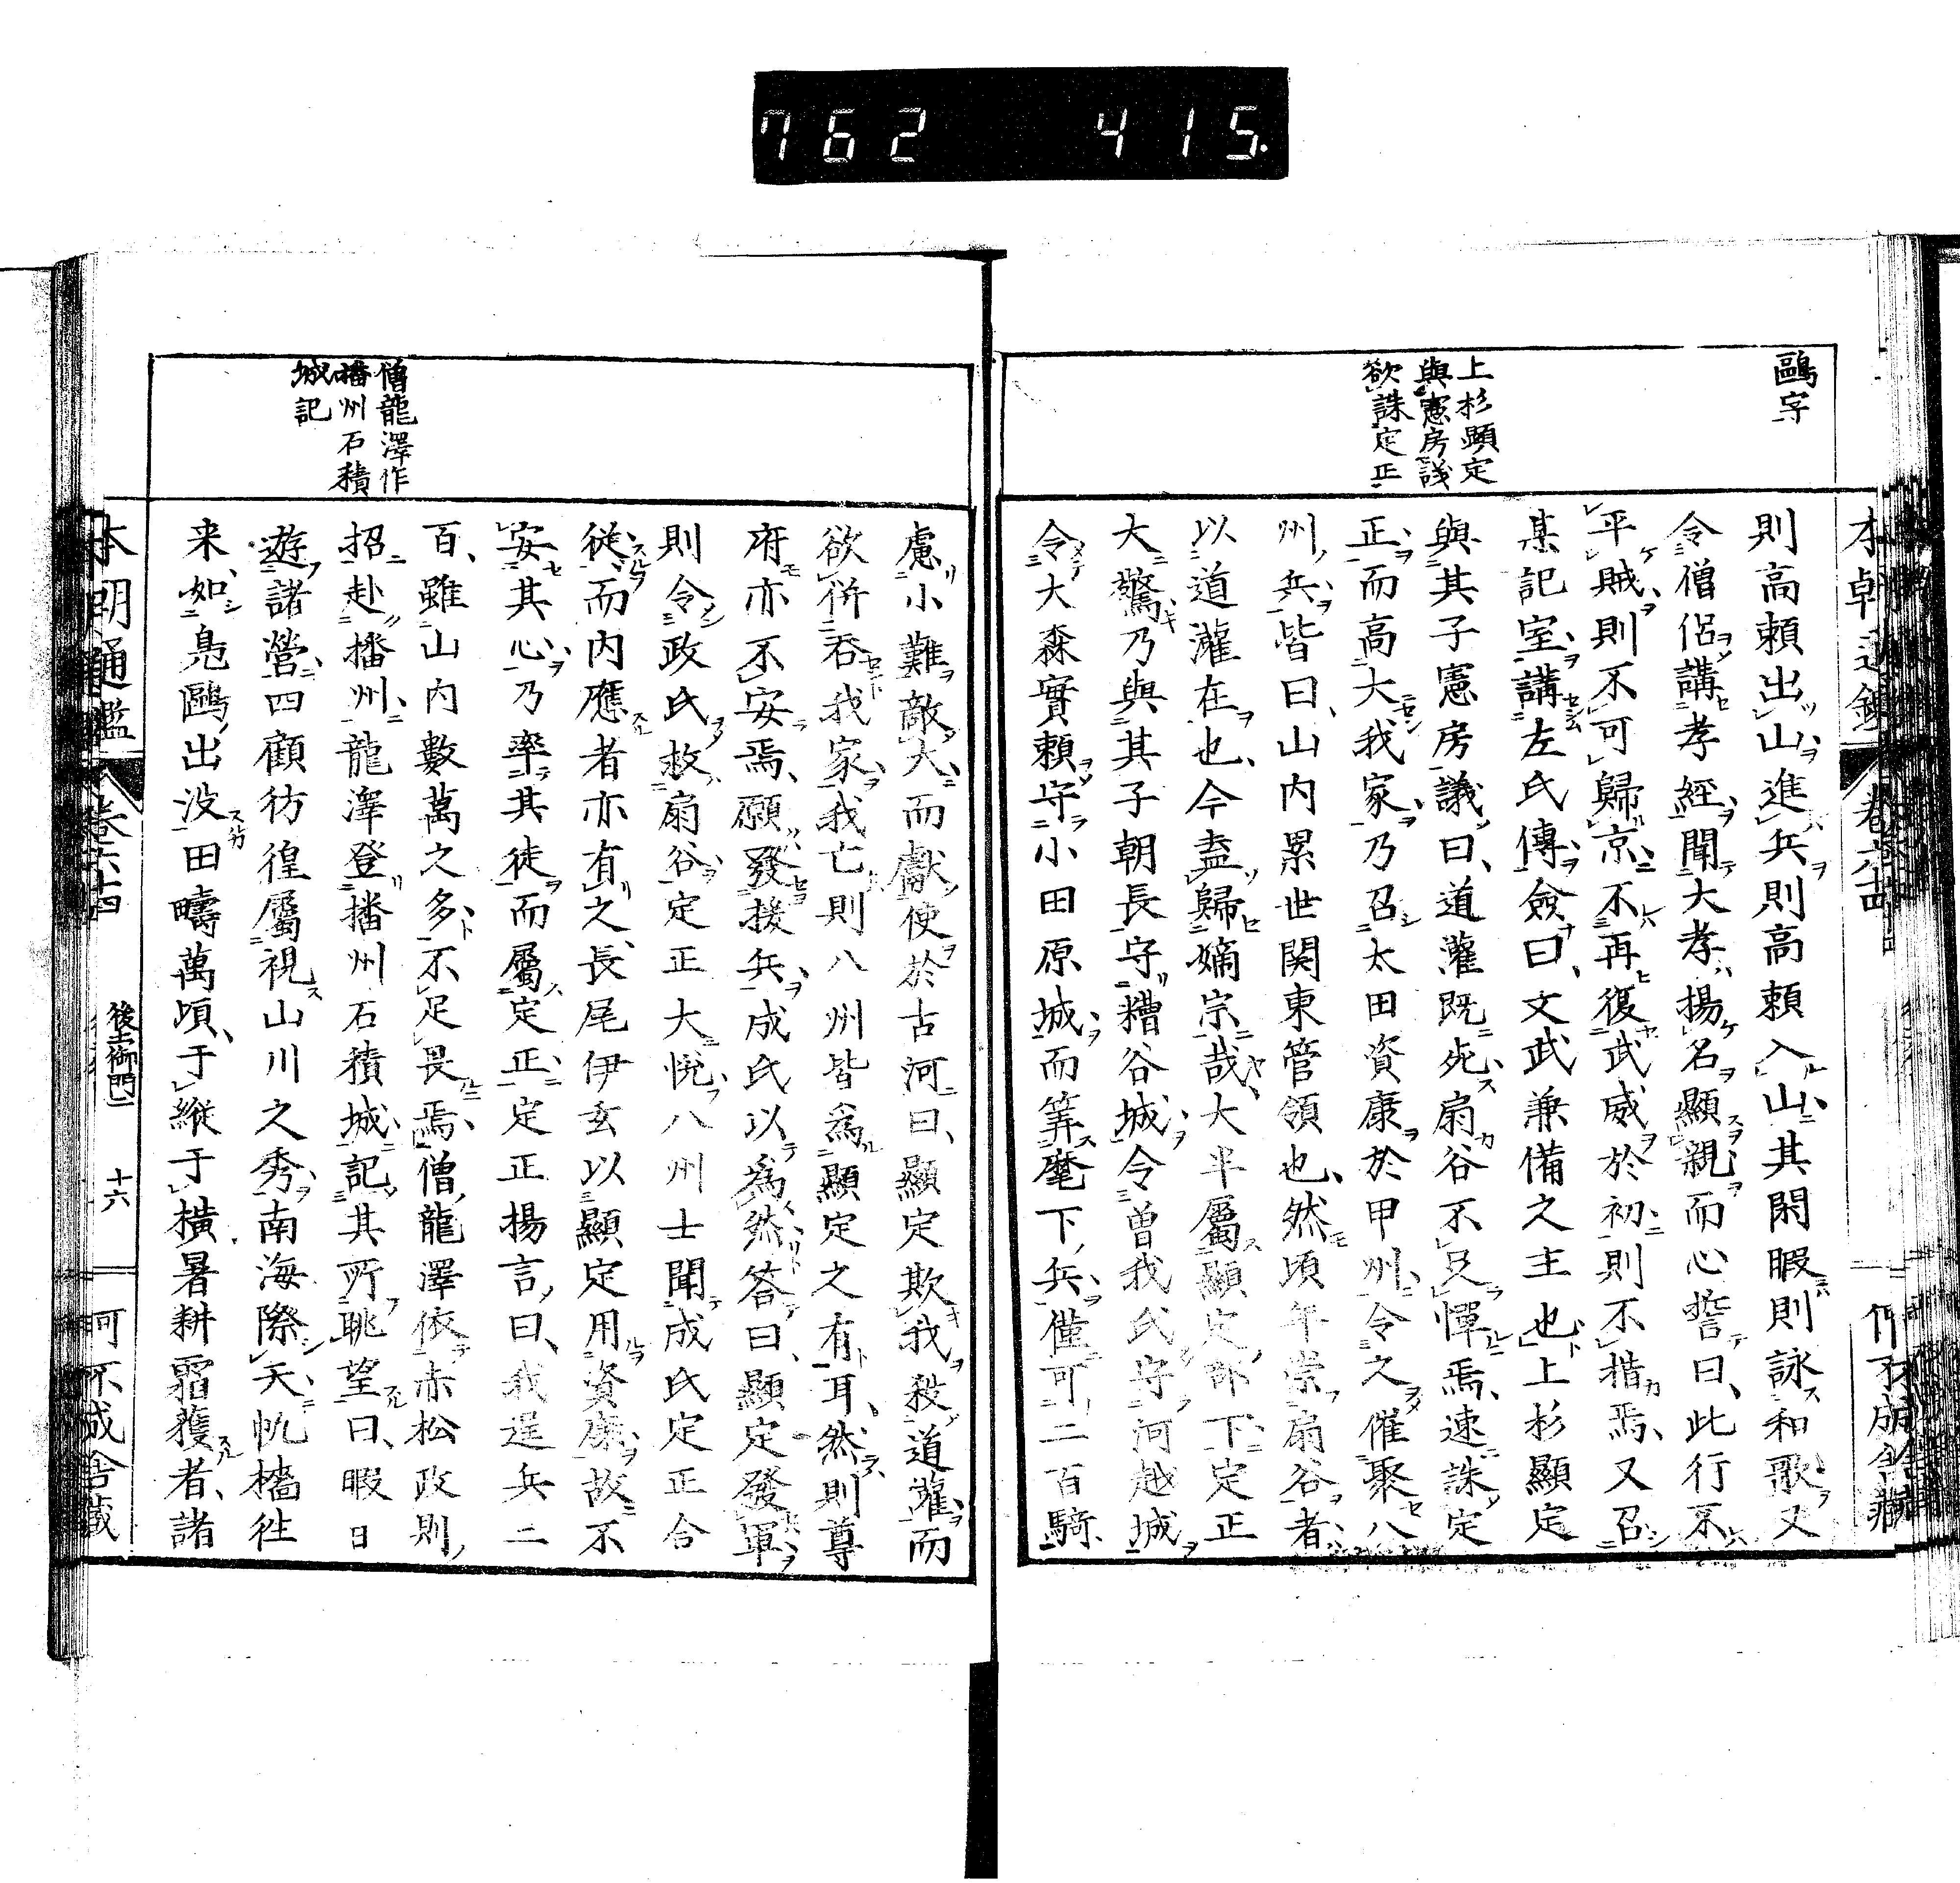 762 415.
鷗字
上杉顯定
與憲房議
欲誅定正
則高頼出山進兵則高頼入山其閑暇則詠和歌又
令僧侶講孝經聞大孝揚名顯親而心誓曰此行不
平賊則不可歸京不再復武威於初則不措焉又召
某記室講左氏傳僉曰文武兼備之主也上杉顯定
與其子憲房議曰道灌既死扇谷不足憚焉速誅定
正而高大我家乃召太田資康於甲州令之催聚八
州兵皆曰山内累世関東管領也然頃年崇扇谷者
以道灌在也今盍歸嫡宗哉大半屬顯定部下定正
大驚乃與其子朝長守糟谷城令曽我氏守河越城
令大森實頼守小田原城而筭麾下兵僅可二百騎
僧龍澤作
播州石積
城記
慮小難敵大而獻使於古河曰顯定欺我殺道灌而
欲併呑我家我亡則八州皆為顯定之有耳然則尊
府亦不安焉願發援兵成氏以為然答曰顯定發軍
則令政氏救扇谷定正大悅八州士聞成氏定正合
従而内應者亦有之長尾伊玄以顯定用資康故不
安其心乃率其徒而屬定正定正揚言曰我逞兵二
百雖山内數萬之多不足畏焉僧龍澤依赤松政則
招赴播州龍澤登播州石積城記其所眺望曰暇日
遊諸營四顧彷徨屬視山川之秀南海際天帆檣徃
来如鳬鷗出没田疇萬頃于縦于橫暑耕霜穫者諸
本朝通鑑 卷六十四 後土御門二 十六 何不成舎藏